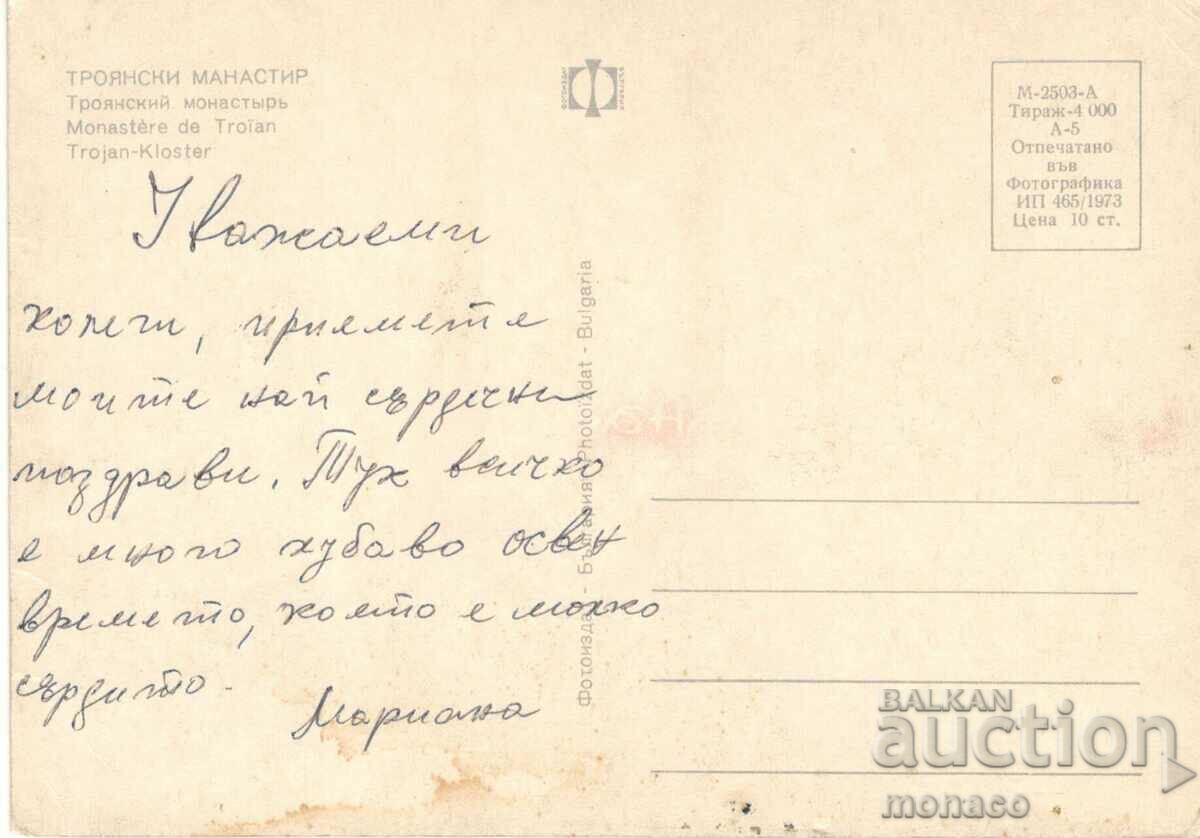 ТРОЯНСКИ МАНАСТИР
Троянский монастырь
Monastère de Troïan
Trojan-Kloster
ФОТОИЗДАТ
БЪЛГАРИЯ
М-2503-А
Тираж-4 000
А-5
Отпечатано
във
Фотографика
ИП 465/1973
Цена 10 ст.
Уважаеми
колеги, приемете
моите най сърдечни
поздрави. Тук всичко
е много хубаво освен
времето, което е малко
сърдито.
Мариана
Фотоиздат - България Photoïzdat - Bulgaria
BALKAN
auction
monaco